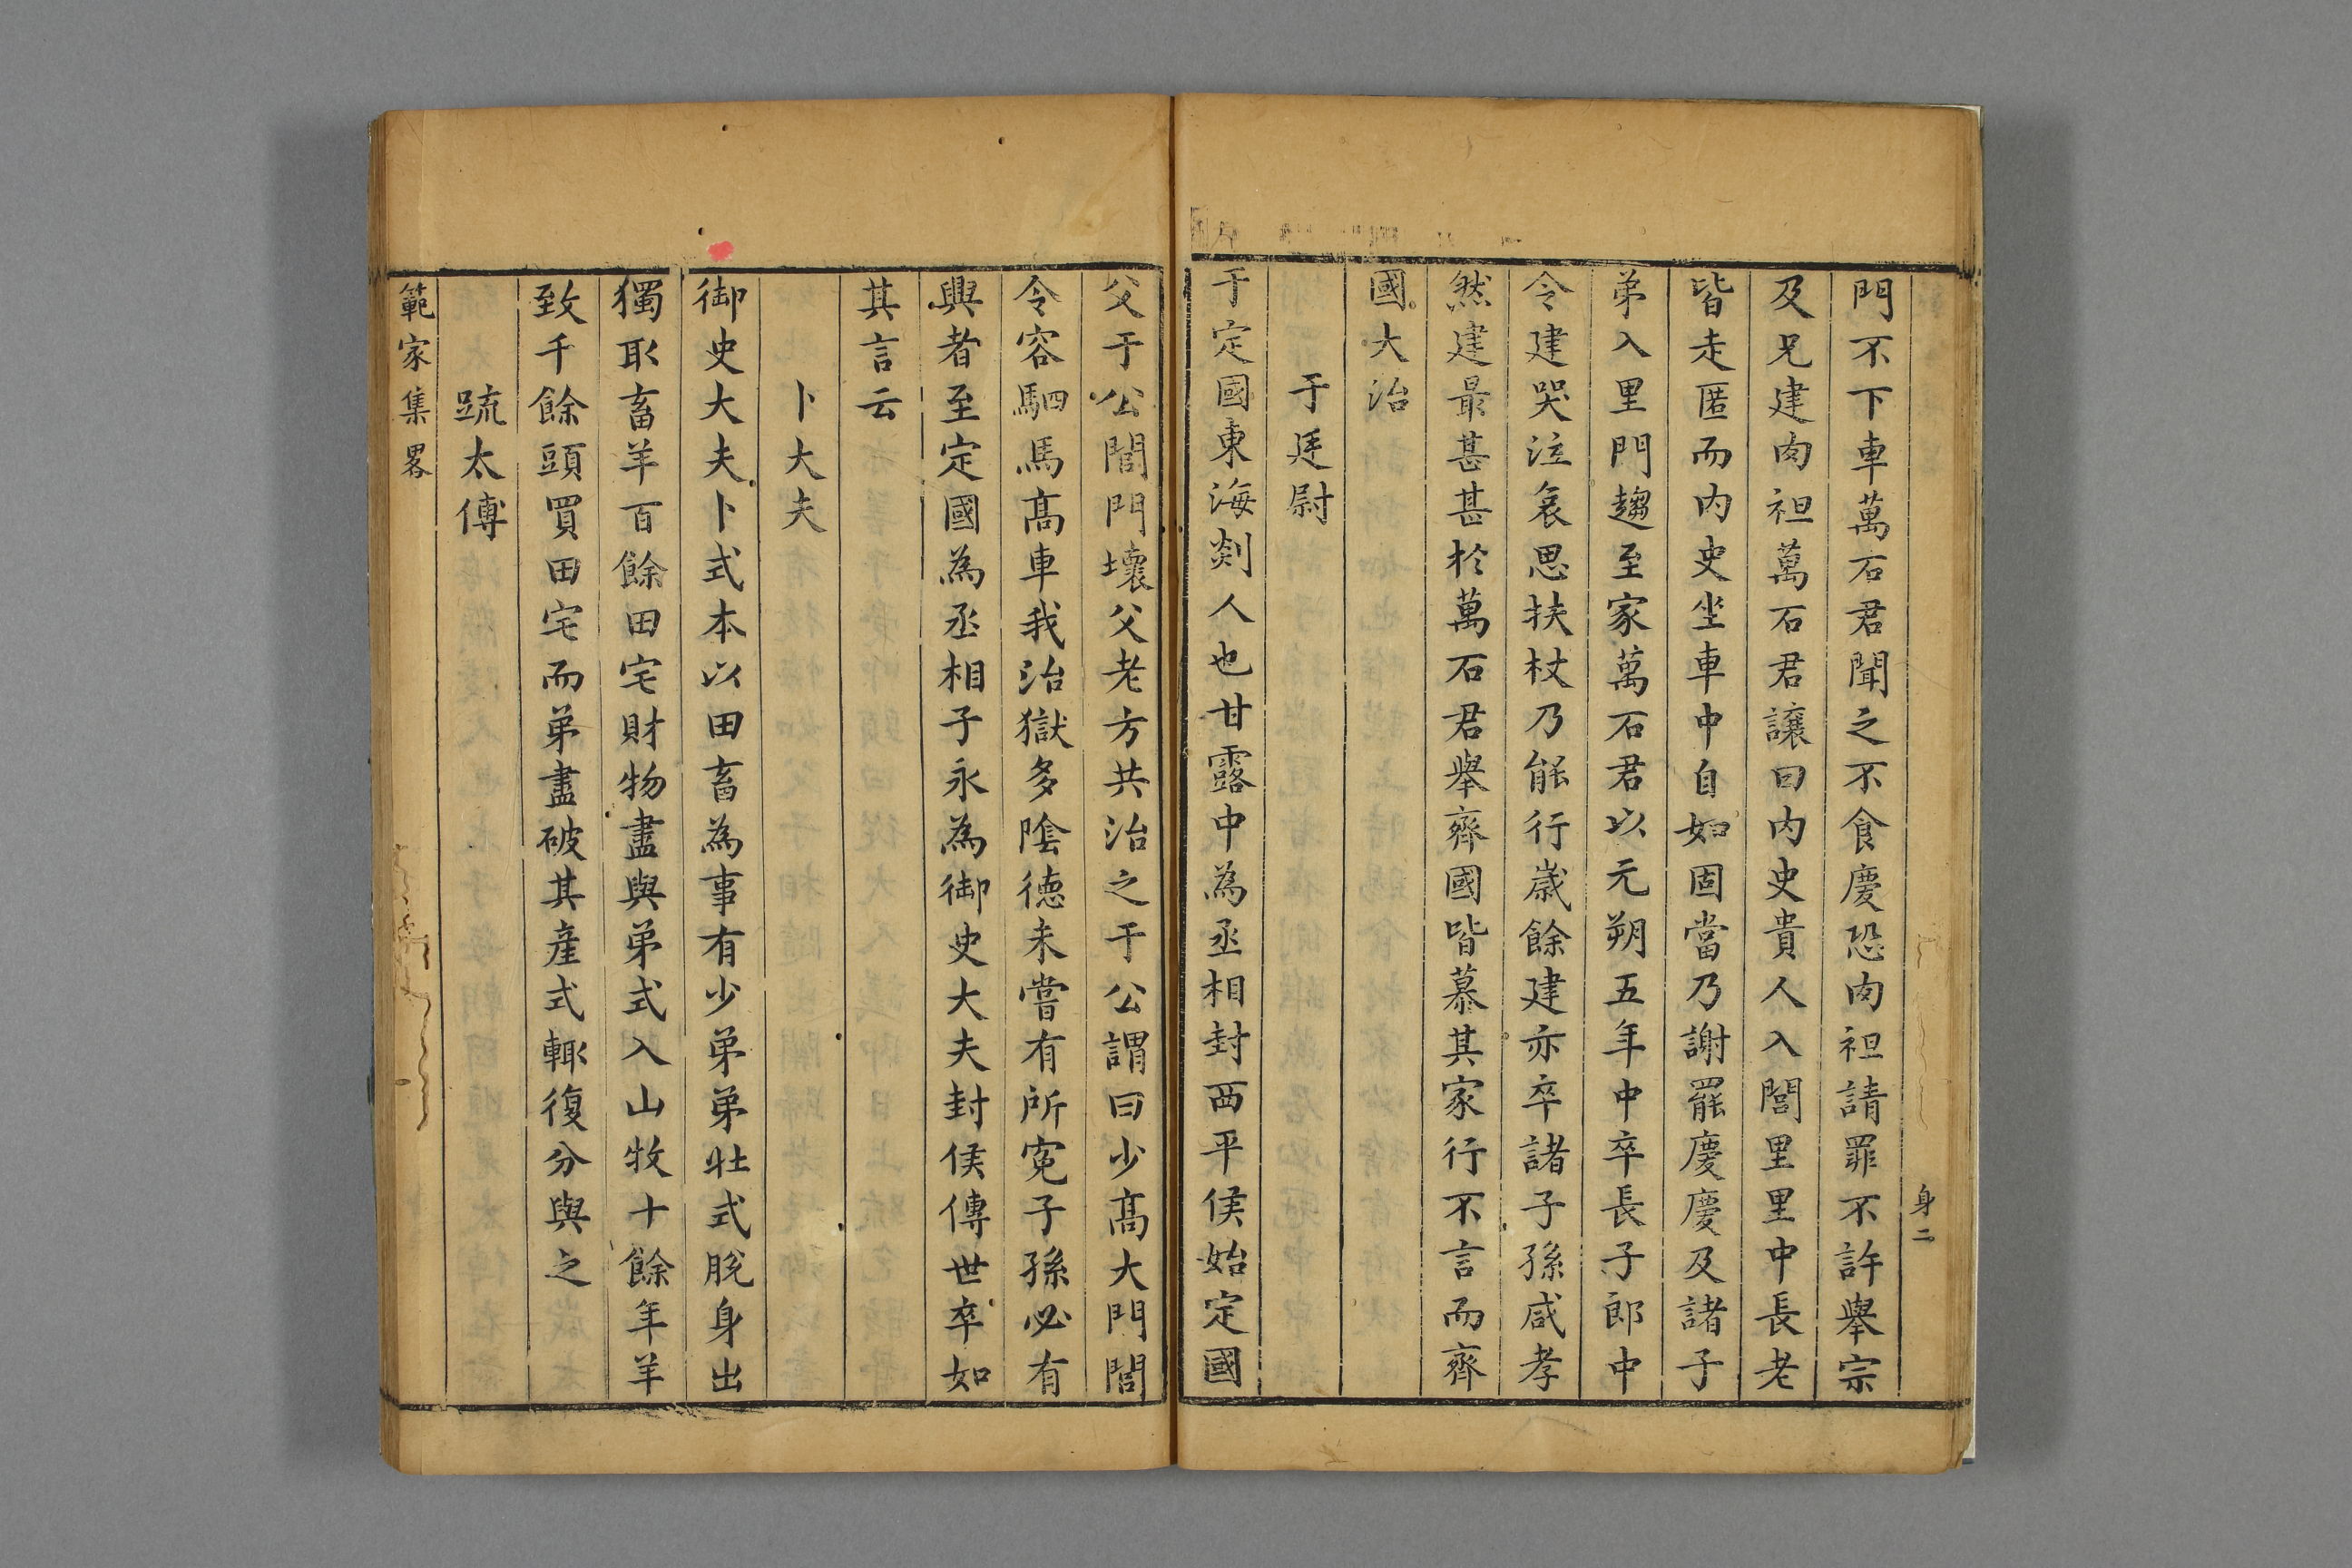 身二
門不下車萬石君聞之不食慶恐肉袒請罪不許舉宗
及兄建肉袒萬石君讓曰内史貴人入閭里里中長老
皆走匿而内史坐車中自如固當乃謝罷慶慶及諸子
弟入里門趨至家萬石君以元朔五年中卒長子郎中
令建哭泣哀思扶杖乃能行歲餘建亦卒諸子孫咸孝
然建最甚甚於萬石君舉齊國皆慕其家行不言而齊
國大治
于廷尉
于定國東海剡人也甘露中為丞相封西平侯始定國
父于公閭門壞父老方共治之于公謂曰少高大門閭
令容駟馬髙車我治獄多隂德未嘗有所寃子孫必有
興者至定國為丞相子永為御史大夫封侯傳世卒如
其言云
卜大夫
御史大夫卜式本以田畜為事有少弟弟壯式脫身出
獨取畜羊百餘田宅財物盡與弟式入山牧十餘年羊
致千餘頭買田宅而弟盡破其産式輒復分與之
䟽太傅
範家集畧